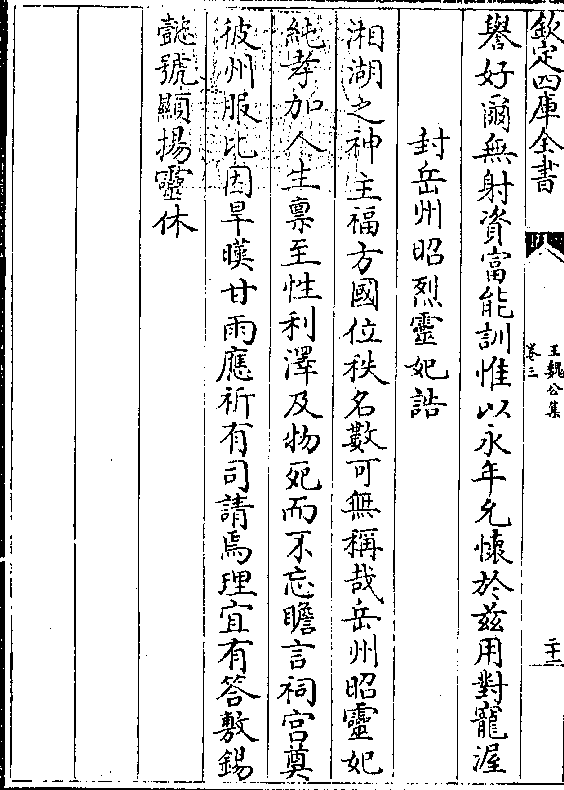 欽定四庫全書
王魏公集
卷三
二十二
譽好爾無射資富能訓惟以永年允懷於兹用對寵渥
封岳州昭烈靈妃誥
湘湖之神主福方國位秩名數可無稱哉岳州昭靈妃
純孝加人生禀至性利澤及物死而不忘瞻言祠宫奠
彼州服比因旱暵甘雨應祈有司請焉理宜有答敷錫
懿號顯揚靈休